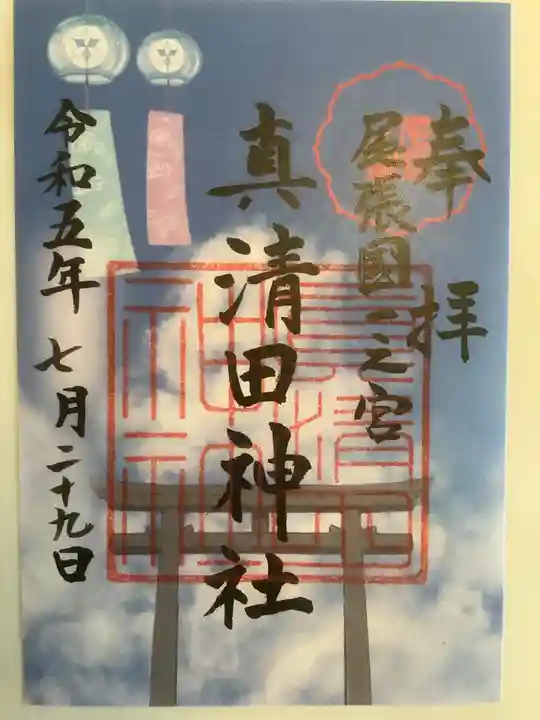 奉拝
尾張國一之宮
真清田神社
令和五年 七月二十九日
真清田
神社